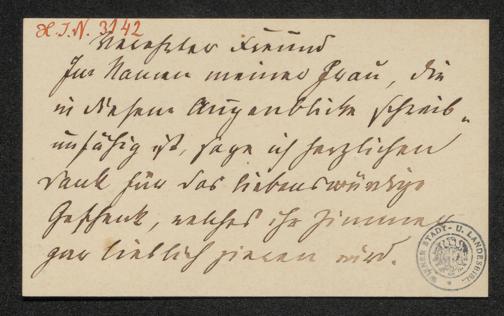 H.I.N. 3142
Verehrter Freund
Im Namen meiner Frau, die
in diesem Augenblicke schreib-
unfähig ist, sage ich herzlichen
Dank für das liebenswürdige
Geschenk, welches ihr Zimmer
gar lieblich zieren wird.
WIENER STADT- U. LANDESBIBL.